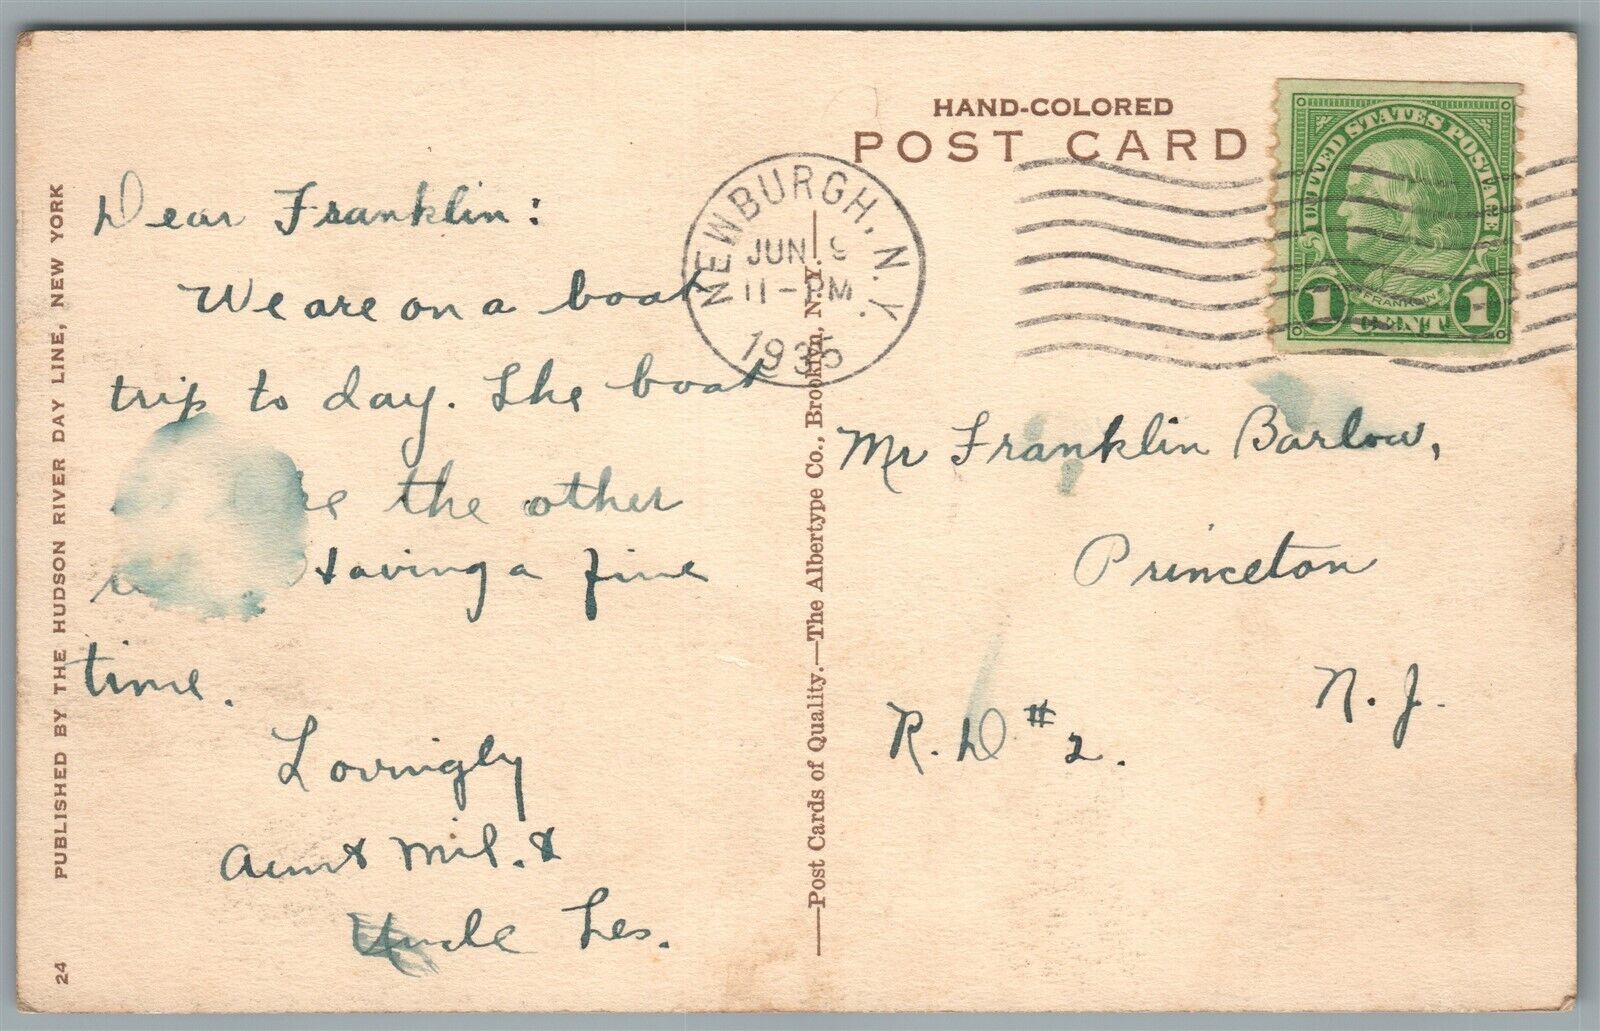 HAND-COLORED
POST CARD
NEWBURGH, N.Y.
JUN 9
11-PM
1935
UNITED STATES POSTAGE
FRANKLIN
1 CENT 1
Dear Franklin:
We are on a boat
trip to day. The boat
the other
Having a fine
time.
Lovingly
Aunt Mil. &
Uncle Les.
Mr Franklin Barlow,
Princeton
N. J.
R. D #2.
PUBLISHED BY THE HUDSON RIVER DAY LINE, NEW YORK
24
—Post Cards of Quality.—The Albertype Co., Brooklyn, N.Y.